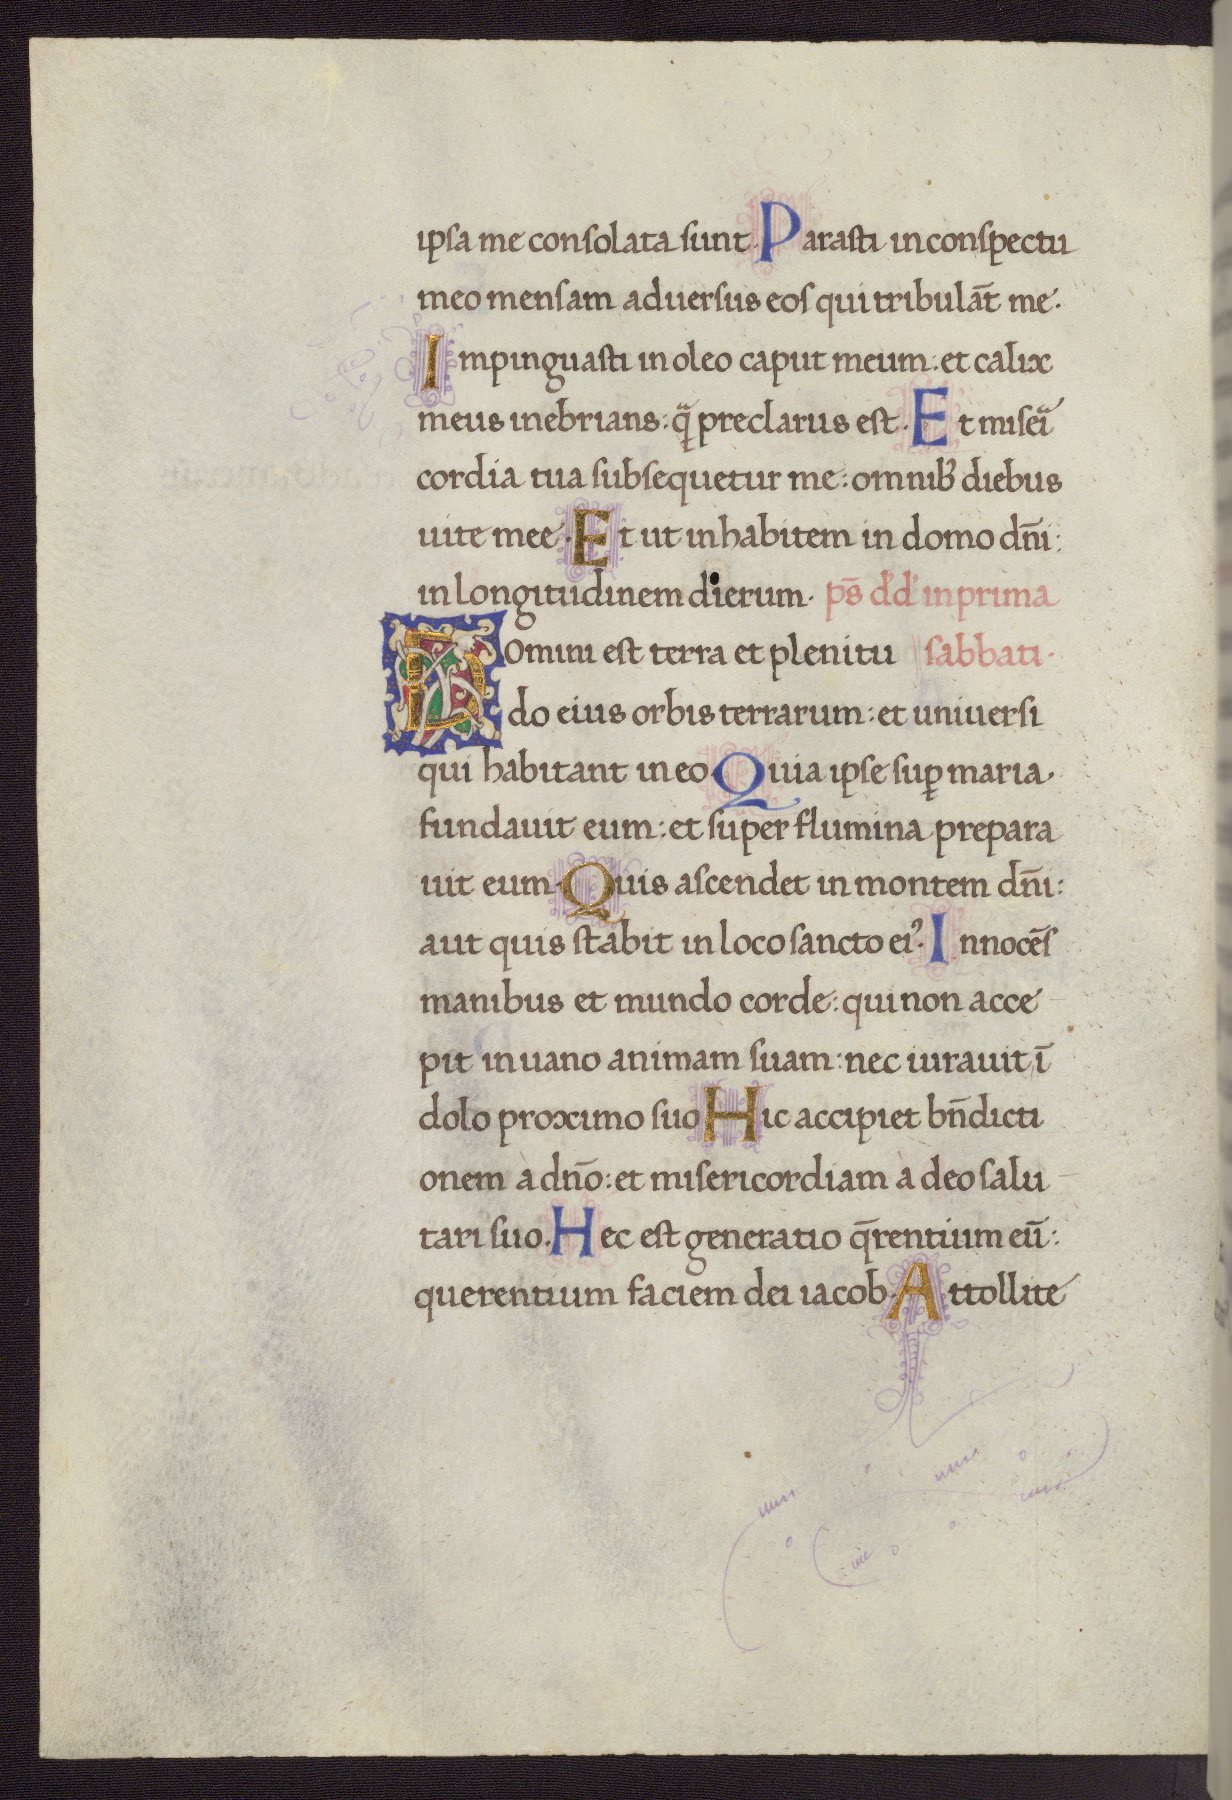 ipsa me consolata sunt. Parasti in conspectu
meo mensam adversus eos qui tribulāt me.
Impinguasti in oleo caput meum: et calix
meus inebrians: q̄ preclarus est. Et miseri
cordia tua subsequetur me: omnib; diebus
uite mee. Et ut inhabitem in domo dn̄i:
in longitudinem dierum. ps̄ d'd' in prima
Domini est terra et plenitu sabbati.
do eius orbis terrarum: et universi
qui habitant in eo. Quia ipse sup̱ maria.
fundavit eum: et super flumina prepara
uit eum. Quis ascendet in montem dn̄i:
aut quis stabit in loco sancto eiꝰ. Innocēs
manibus et mundo corde: qui non acce
pit in uano animam suam: nec iurauit ī
dolo proximo suo. Hic accipiet bn̄dicti
onem à dn̄o: et misericordiam à deo salu
tari suo. Hec est generatio q̄rentium eū:
querentium faciem dei iacob. Attollite